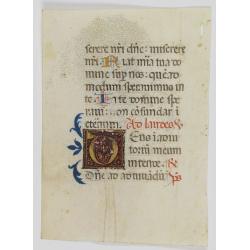 serere nr̄i dn̄e: miserere
nr̄i. Fiat mīa tua do
mine sup nos: quēad
medum speravimus in
te. In te domine spe
ravi: non cōfundar ī
eternum. Ad laudes
Deus ī adiu
torīu meum
intende. R
Dn̄e ad adiuvādū ps